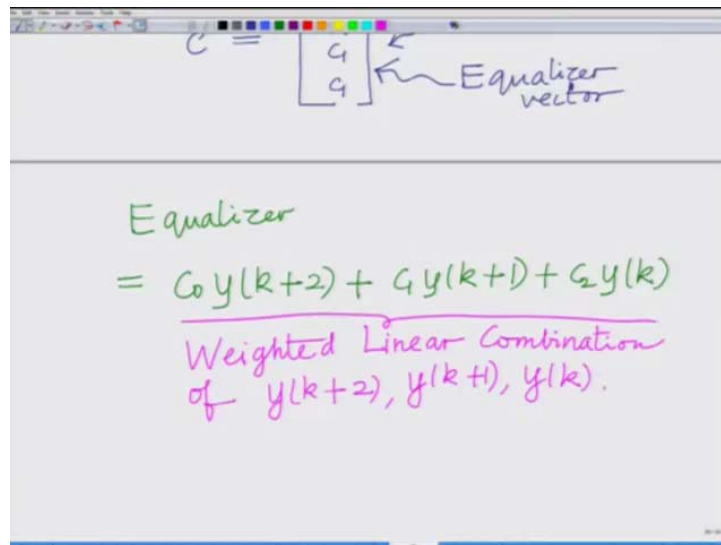 C =
C1
C1
Equalizer
vector
Equalizer
= C0 y(k+2) + C1 y(k+1) + C2 y(k)
Weighted Linear Combination
of y(k+2), y(k+1), y(k).